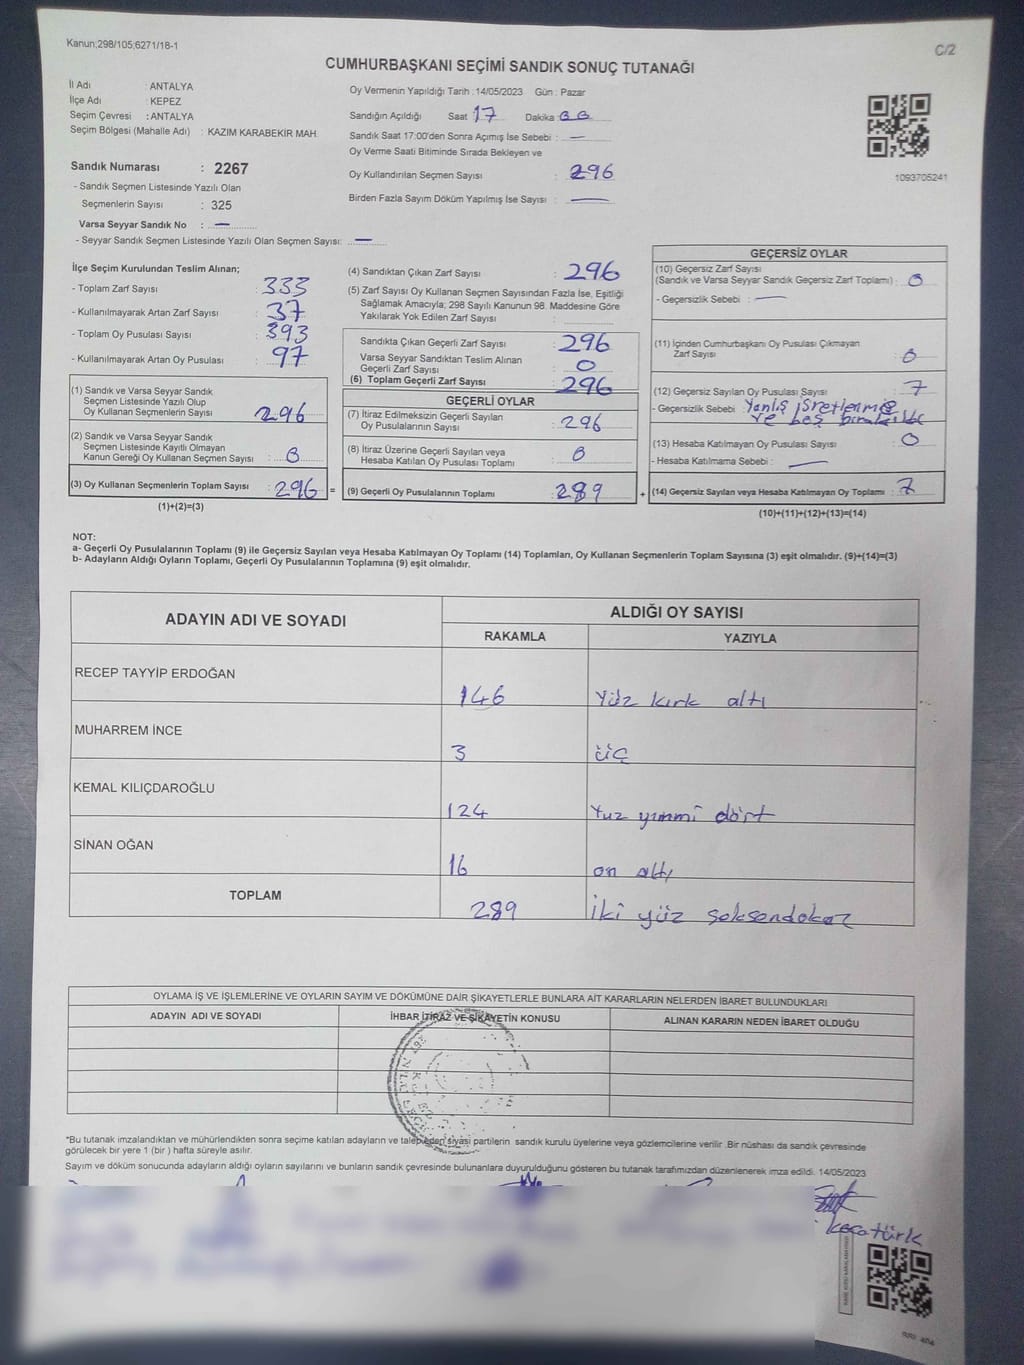 Kanun;298/105;6271/18-1
C/2
CUMHURBAŞKANI SEÇİMİ SANDIK SONUÇ TUTANAĞI
İl Adı : ANTALYA
İlçe Adı : KEPEZ
Seçim Çevresi : ANTALYA
Seçim Bölgesi (Mahalle Adı) : KAZIM KARABEKİR MAH.
Sandık Numarası : 2267
- Sandık Seçmen Listesinde Yazılı Olan
Seçmenlerin Sayısı : 325
Varsa Seyyar Sandık No : —
- Seyyar Sandık Seçmen Listesinde Yazılı Olan Seçmen Sayısı: —
Oy Vermenin Yapıldığı Tarih : 14/05/2023 Gün : Pazar
Sandığın Açıldığı Saat 17 Dakika :
Sandık Saat 17:00'den Sonra Açımış İse Sebebi : —
Oy Verme Saati Bitiminde Sırada Bekleyen ve
Oy Kullandırılan Seçmen Sayısı : 296
Birden Fazla Sayım Döküm Yapılmış İse Sayısı : —
1093705241
İlçe Seçim Kurulundan Teslim Alınan;
- Toplam Zarf Sayısı : 333
- Kullanılmayarak Artan Zarf Sayısı : 37
- Toplam Oy Pusulası Sayısı : 393
- Kullanılmayarak Artan Oy Pusulası : 97
(1) Sandık ve Varsa Seyyar Sandık
Seçmen Listesinde Yazılı Olup
Oy Kullanan Seçmenlerin Sayısı : 296
(2) Sandık ve Varsa Seyyar Sandık
Seçmen Listesinde Kayıtlı Olmayan
Kanun Gereği Oy Kullanan Seçmen Sayısı : 0
(3) Oy Kullanan Seçmenlerin Toplam Sayısı : 296 =
(1)+(2)=(3)
(4) Sandıktan Çıkan Zarf Sayısı : 296
(5) Zarf Sayısı Oy Kullanan Seçmen Sayısından Fazla İse, Eşitliği
Sağlamak Amacıyla; 298 Sayılı Kanunun 98. Maddesine Göre
Yakılarak Yok Edilen Zarf Sayısı :
Sandıkta Çıkan Geçerli Zarf Sayısı : 296
Varsa Seyyar Sandıktan Teslim Alınan
Geçerli Zarf Sayısı : 0
(6) Toplam Geçerli Zarf Sayısı : 296
GEÇERLİ OYLAR
(7) İtiraz Edilmeksizin Geçerli Sayılan
Oy Pusulalarının Sayısı : 296
(8) İtiraz Üzerine Geçerli Sayılan veya
Hesaba Katılan Oy Pusulası Toplamı : 0
(9) Geçerli Oy Pusulalarının Toplamı : 289 +
GEÇERSİZ OYLAR
(10) Geçersiz Zarf Sayısı
(Sandık ve Varsa Seyyar Sandık Geçersiz Zarf Toplamı) : 0
- Geçersizlik Sebebi : —
(11) İçinden Cumhurbaşkanı Oy Pusulası Çıkmayan
Zarf Sayısı : 0
(12) Geçersiz Sayılan Oy Pusulası Sayısı : 7
- Geçersizlik Sebebi : Yanlış
ve boş
(13) Hesaba Katılmayan Oy Pusulası Sayısı : 0
- Hesaba Katılmama Sebebi : —
(14) Geçersiz Sayılan veya Hesaba Katılmayan Oy Toplamı : 7
(10)+(11)+(12)+(13)=(14)
NOT:
a- Geçerli Oy Pusulalarının Toplamı (9) ile Geçersiz Sayılan veya Hesaba Katılmayan Oy Toplamı (14) Toplamları, Oy Kullanan Seçmenlerin Toplam Sayısına (3) eşit olmalıdır. (9)+(14)=(3)
b- Adayların Aldığı Oyların Toplamı, Geçerli Oy Pusulalarının Toplamına (9) eşit olmalıdır.
ADAYIN ADI VE SOYADI
ALDIĞI OY SAYISI
RAKAMLA YAZIYLA
RECEP TAYYİP ERDOĞAN 146 Yüz kırk altı
MUHARREM İNCE 3 üç
KEMAL KILIÇDAROĞLU 124 Yuz yırmmi dört
SİNAN OĞAN 16 on altı
TOPLAM 289 İki yüz seksendokuz
OYLAMA İŞ VE İŞLEMLERİNE VE OYLARIN SAYIM VE DÖKÜMÜNE DAİR ŞİKAYETLERLE BUNLARA AİT KARARLARIN NELERDEN İBARET BULUNDUKLARI
ADAYIN ADI VE SOYADI İHBAR İTİRAZ VE ŞİKAYETİN KONUSU ALINAN KARARIN NEDEN İBARET OLDUĞU
*Bu tutanak imzalandıktan ve mühürlendikten sonra seçime katılan adayların ve talep eden siyasi partilerin sandık kurulu üyelerine veya gözlemcilerine verilir. Bir nüshası da sandık çevresinde
görülecek bir yere 1 (bir ) hafta süreyle asılır.
Sayım ve döküm sonucunda adayların aldığı oyların sayılarını ve bunların sandık çevresinde bulunanlara duyurulduğunu gösteren bu tutanak tarafımızdan düzenlenerek imza edildi. 14/05/2023